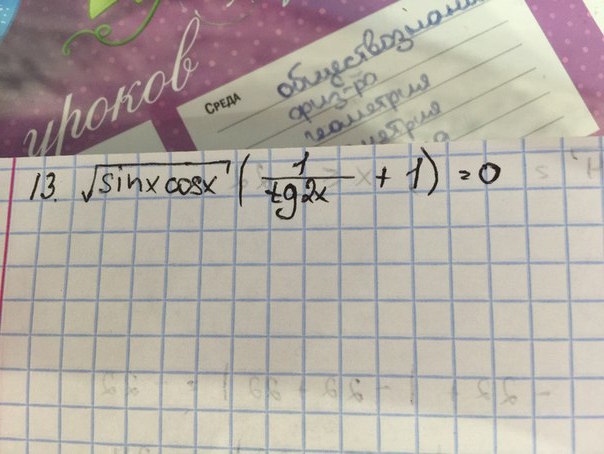 уроков
СРЕДА
обществознание
физ-ра
геометрия
13. √sinxcosx (1/tg2x + 1) = 0